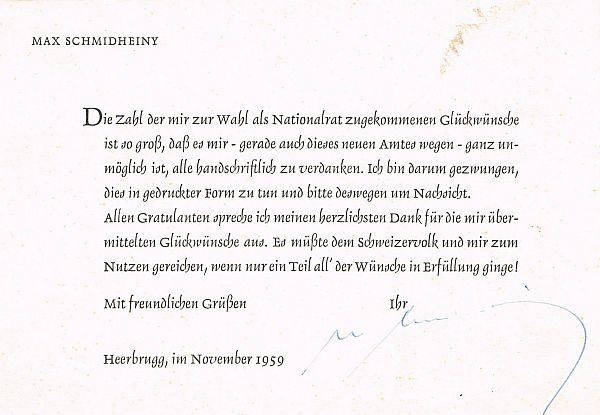 MAX SCHMIDHEINY
Die Zahl der mir zur Wahl als Nationalrat zugekommenen Glückwünsche
ist so groß, daß es mir - gerade auch dieses neuen Amtes wegen - ganz un-
möglich ist, alle handschriftlich zu verdanken. Ich bin darum gezwungen,
dies in gedruckter Form zu tun und bitte deswegen um Nachsicht.
Allen Gratulanten spreche ich meinen herzlichsten Dank für die mir über-
mittelten Glückwünsche aus. Es müßte dem Schweizervolk und mir zum
Nutzen gereichen, wenn nur ein Teil all' der Wünsche in Erfüllung ginge!
Mit freundlichen Grüßen Ihr
Heerbrugg, im November 1959